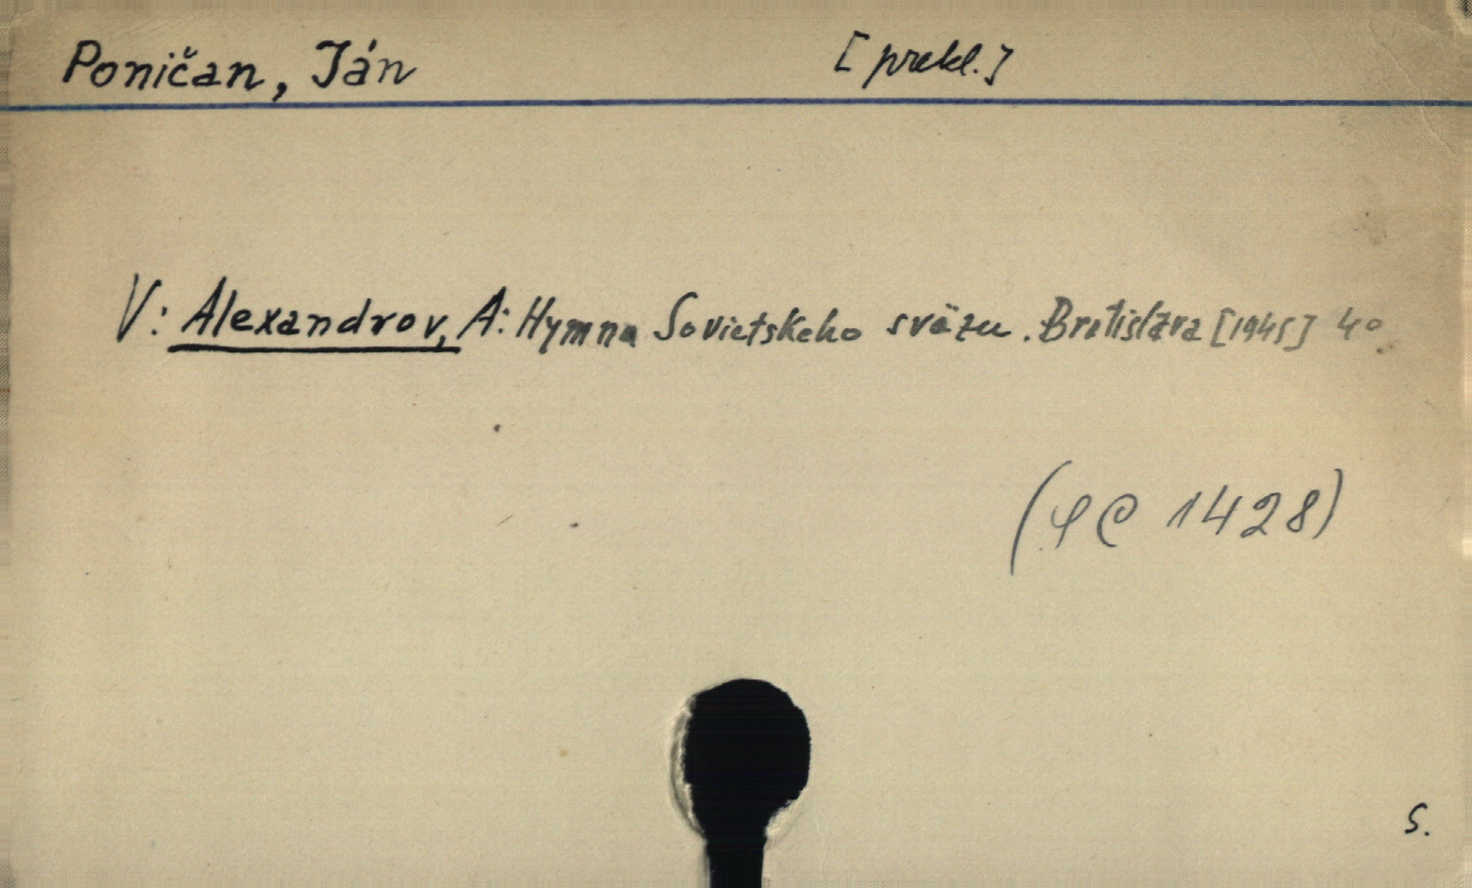 Poničan, Ján [prekl.]
V: Alexandrov, A: Hymna Sovietskeho sväzu. Bratislava [1945] 4°
(SC 1428)
S.